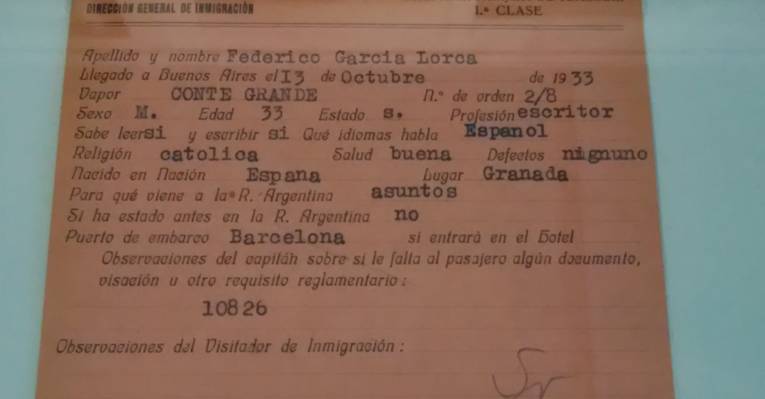 DIRECCIÓN GENERAL DE INMIGRACIÓN
1.ª CLASE
Apellido y nombre Federico Garcia Lorca
Llegado a Buenos Aires el 13 de Octubre de 1933
Vapor CONTE GRANDE n.º de orden 2/8
Sexo M. Edad 33 Estado s. Profesión escritor
Sabe leer si y escribir si Qué idiomas habla Espanol
Religión catolica Salud buena Defectos nignuno
Nacido en Nación Espana Lugar Granada
Para qué viene a la R. Argentina asuntos
Si ha estado antes en la R. Argentina no
Puerto de embarco Barcelona si entrará en el Hotel
Observaciones del capitán sobre si le falta al pasajero algún documento,
visación u otro requisito reglamentario:
10826
Observaciones del Visitador de Inmigración: